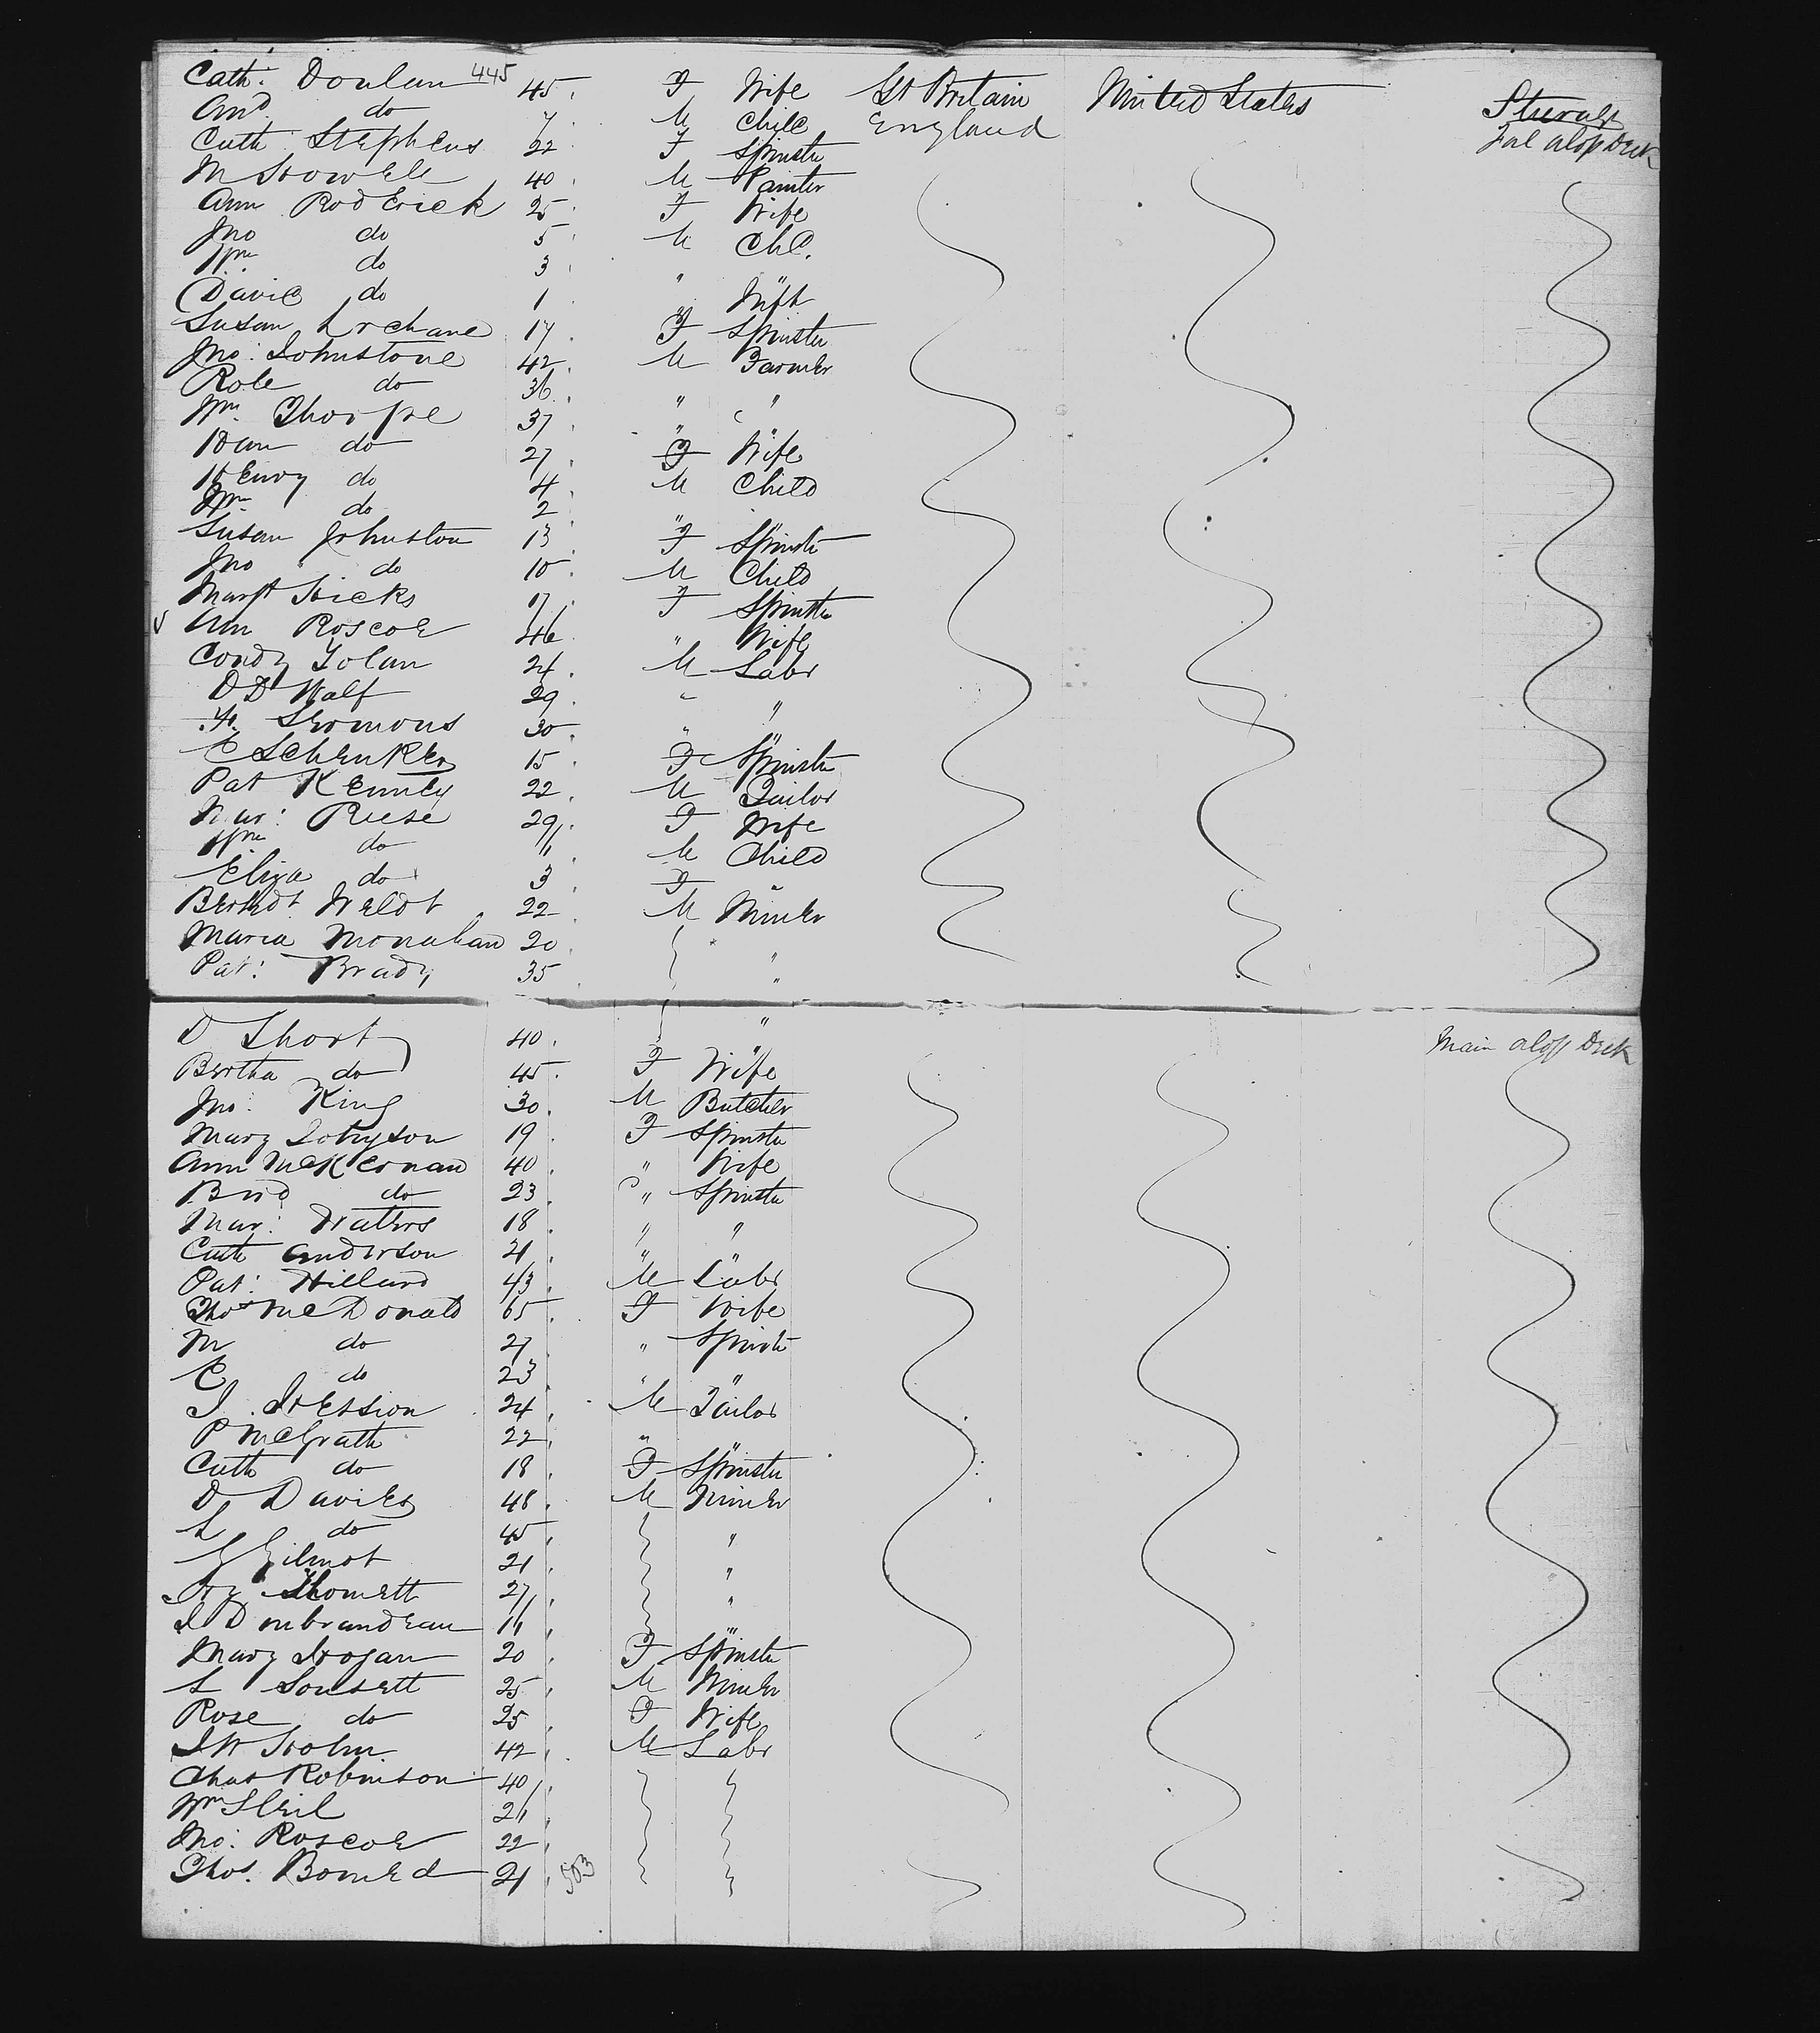 Cath: Donlan 445 45 F Wife Gt Britain United States Steerage
And. do 7 M Child England For alop Deck
Cath Stephens 22 F Spinster
M Howell 40 M Painter
Ann Roderick 25 F Wife
Jno do 5 M Chd.
Wm do 3 "
David do 1 " Inft
Susan 17 F Spinster
Jno: Johnstone 42 M Farmer
Robt do 36 " "
Wm Thorpe 37 " "
Han do 27 F Wife
Henry do 4 M Child
Wm do 2 " "
Susan Johnston 13 F Spinst
Jno do 10 M Child
Margt Hicks 17 F Spinster
Ann Roscoe 46 " Wife
Condy Folan 24 M Labr
D D Walf 29 " "
30 " "
C Schenker 15 F Spinster
Pat Kenney 22 M Tailor
Mar: Reese 29 F Wife
Wm do 11 M Child
Eliza do 3 F "
Weldt 22 M Miner
Maria Monahan 20 "
Pat: Brady 35 "
D Short 40 " Main alop Deck
Bertha do 45 F Wife
Jno: King 30 M Butcher
Mary Johnson 19 F Spinster
Ann McKernan 40 " Wife
Brid do 23 " Spinster
Mar: Waters 18 " "
Cath Anderson 21 " "
Pat: Hillard 43 M Labr
Thos McDonald 65 F Wife
M do 27 " Spinst
C do 23 " "
J. Hession 24 M Tailor
P McGrath 22 " "
Cath do 18 F Spinster
D Davies 48 M Miner
L do 45 "
G Gilmot 21 "
27 "
11 "
Mary Hogan 20 F Spinster
L Sonsett 25 M Miner
Rose do 25 F Wife
J W Holm 42 M Labr
Chas Robinson 40
Wm 21
Jno: Roscoe 22
Thos. 21 503